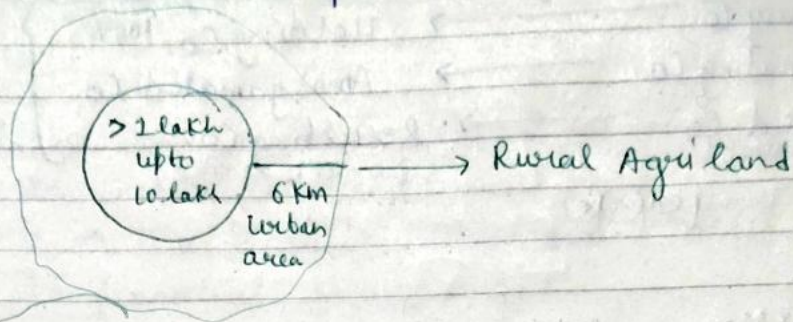 > 1 lakh
upto
10 lakh
6 Km
Urban
area
Rural Agri land